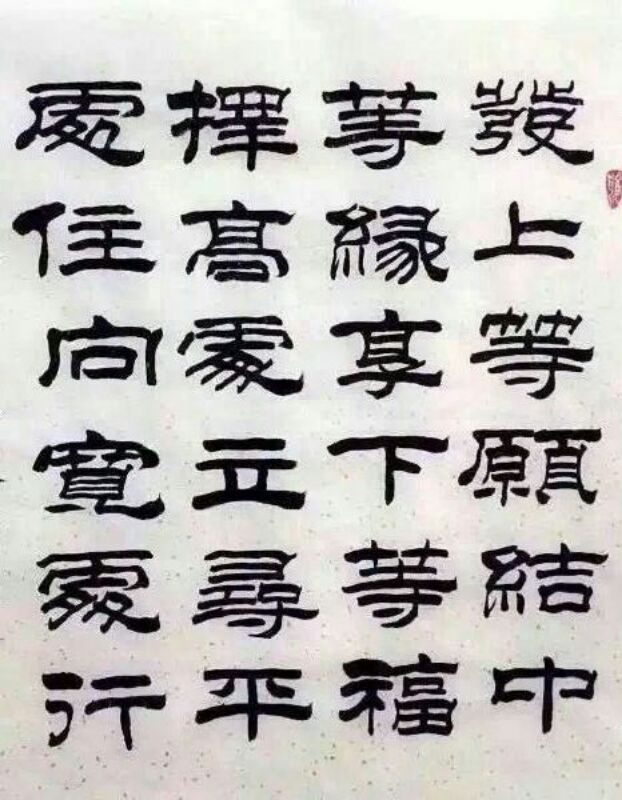 發上等願結中
等緣享下等福
擇髙處立尋平
處住向寬處行